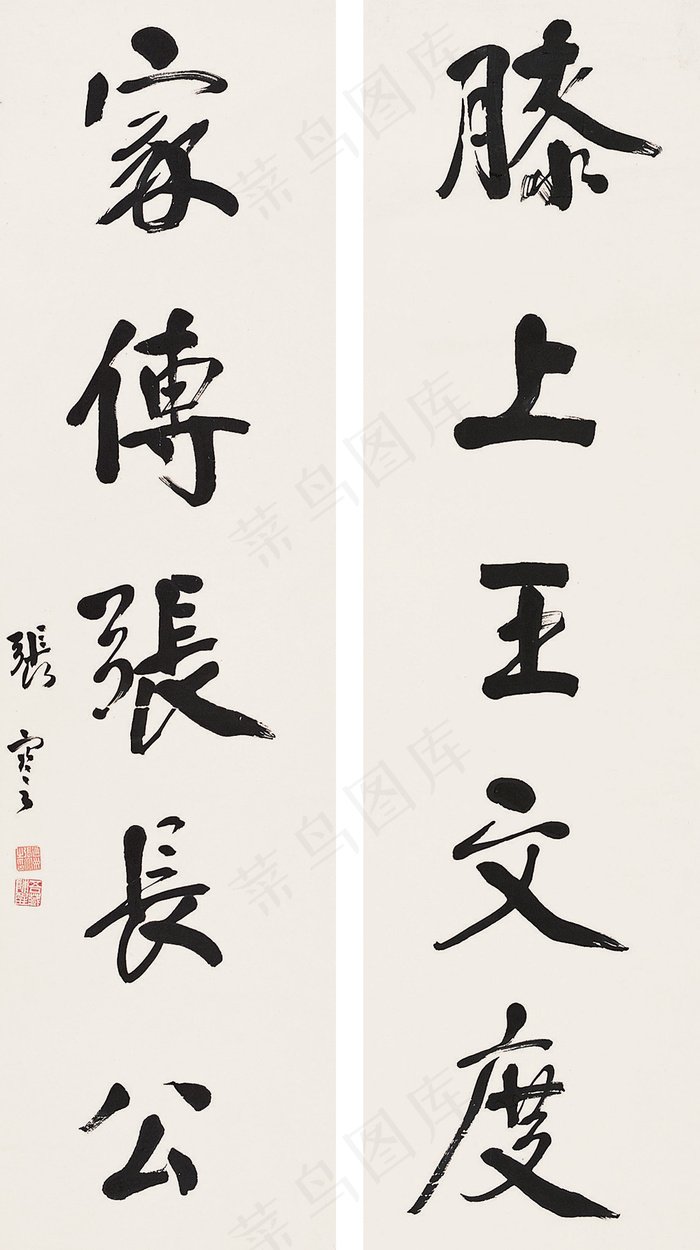 膝上王文度
家傳張長公
張寒雲
菜鸟图库
菜鸟图库
菜鸟图库
菜鸟图库